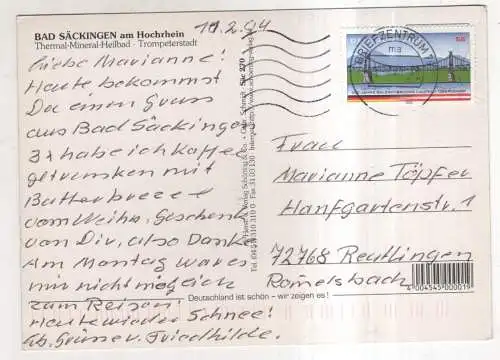 BAD SÄCKINGEN am Hochrhein
Thermal-Mineral-Heilbad · Trompeterstadt
Liebe Marianne!
Heute bekommst
Du einen Gruss
aus Bad Säckingen
3x habe ich Kaffee
getrunken mit
Butterbrezel
vom Weihn. Geschenk
von Dir, also Danke
Am Montag war es
mir nicht möglich
zum Reisen!
Heute wieder Schnee!
lb. Grüsse v. Friedhilde.
Säc 270
BRIEFZENTRUM
Frau
Marianne Töpfer
Hanfgartenstr. 1
72768 Reutlingen
Romelsbach
4 004545 000019
Deutschland ist schön – wir zeigen es!